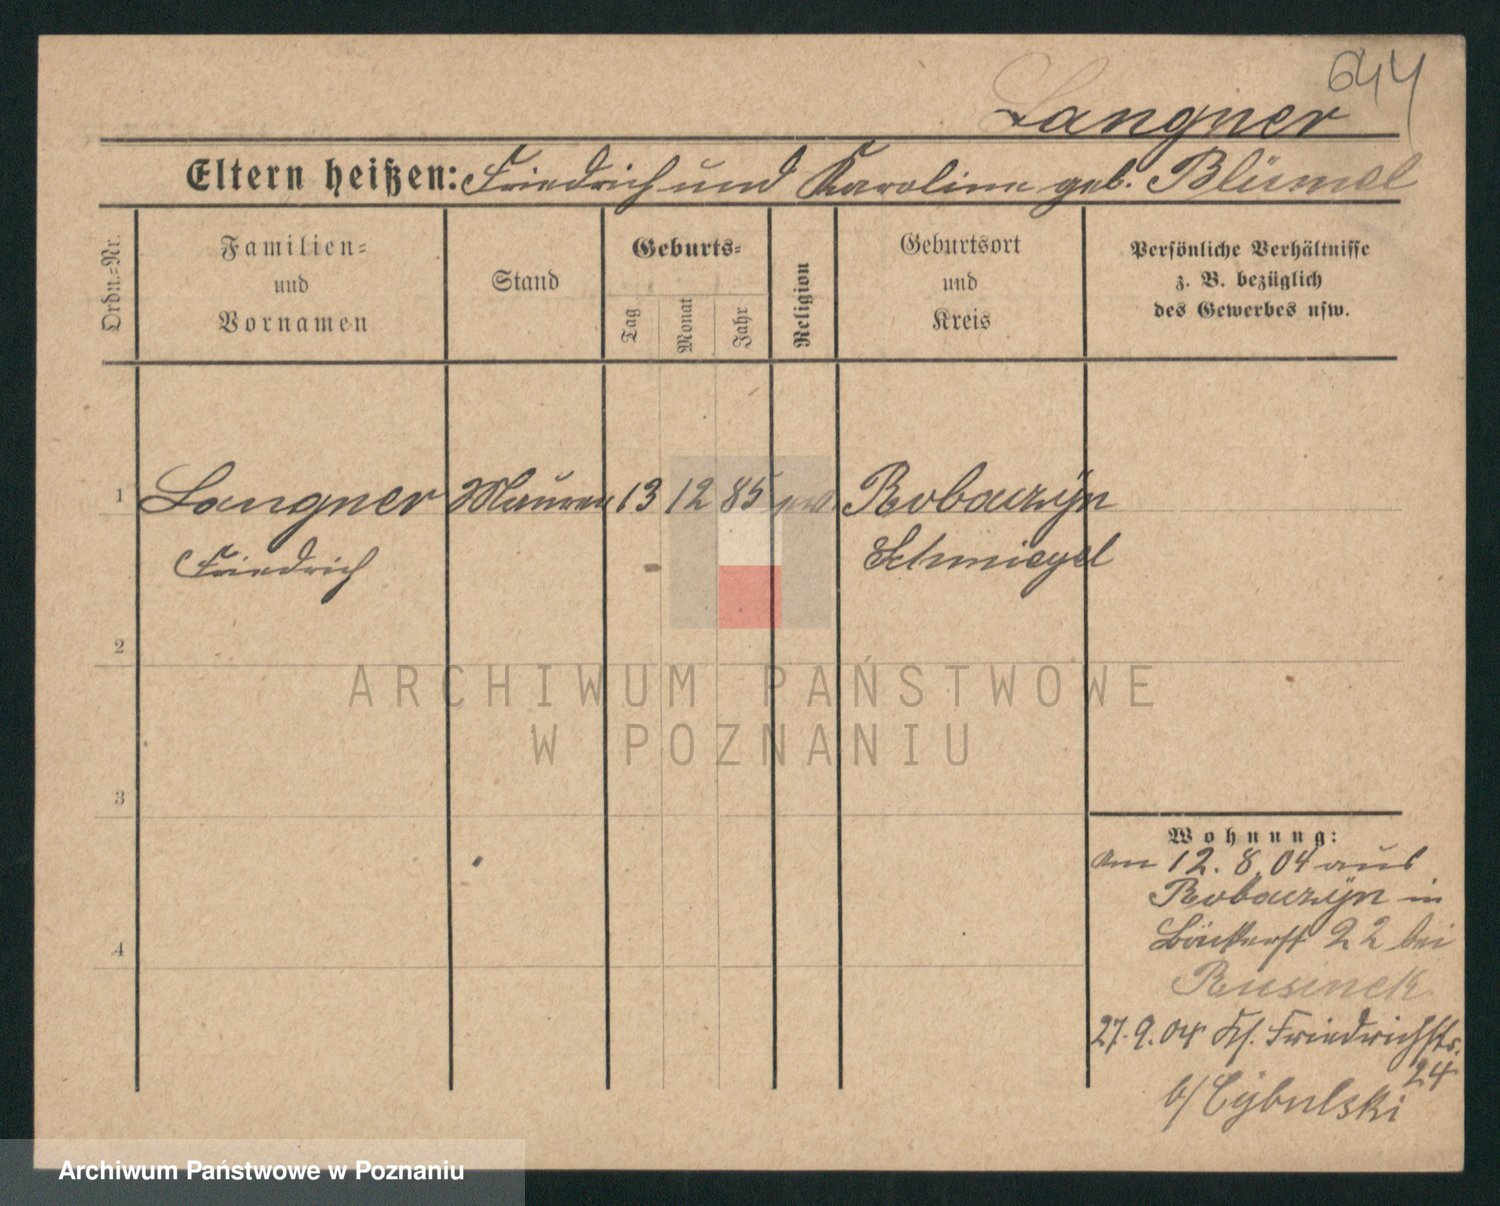 644
Langner
Eltern heißen: Friedrich und Karoline geb. Blümel
Ordn.=Nr.
Familien=
und
Vornamen
Stand
Geburts=
Tag
Monat
Jahr
Religion
Geburtsort
und
Kreis
Persönliche Verhältnisse
z. B. bezüglich
des Gewerbes usw.
1 Langner Maurer 13 12 85 Robaczyn
Friedrich Schmiegel
2
3
4
ARCHIWUM PAŃSTWOWE
W POZNANIU
Wohnung:
am 12. 8. 04 aus
Robaczyn in
Bäckerst 22 bei
Rusinek
27. 9. 04 Kl. Friedrichstr.
24
b/ Cybulski
Archiwum Państwowe w Poznaniu